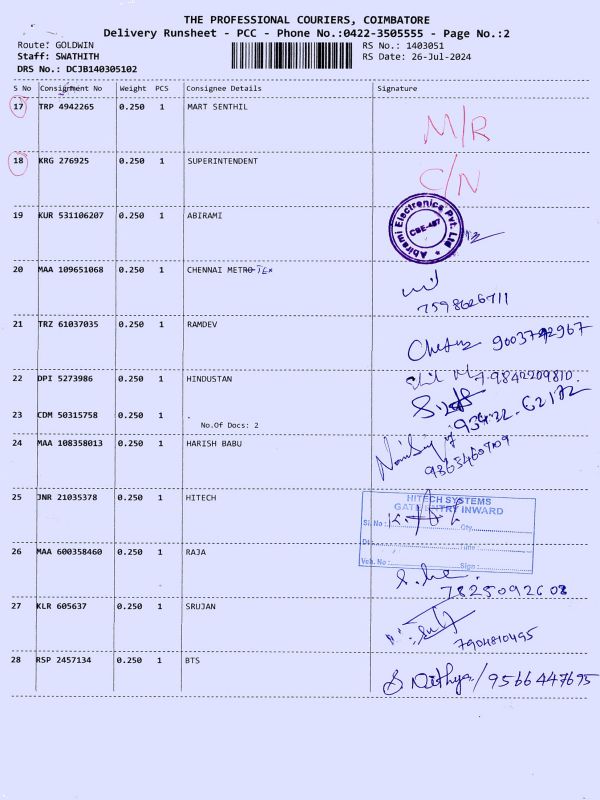 THE PROFESSIONAL COURIERS, COIMBATORE
Delivery Runsheet - PCC - Phone No.:0422-3505555 - Page No.:2
Route: GOLDWIN
RS No.: 1403051
Staff: SWATHITH
RS Date: 26-Jul-2024
DRS No.: DCJB140305102
S No Consignment No Weight PCS Consignee Details Signature
17 TRP 4942265 0.250 1 MART SENTHIL
M/R
18 KRG 276925 0.250 1 SUPERINTENDENT
C/N
19 KUR 531106207 0.250 1 ABIRAMI
Abirami Electronics Pvt. Ltd
CBE-497
20 MAA 109651068 0.250 1 CHENNAI METRO TEX
7598626711
21 TRZ 61037035 0.250 1 RAMDEV
9003742967
22 DPI 5273986 0.250 1 HINDUSTAN
9842209810
23 CDM 50315758 0.250 1
No.Of Docs: 2
24 MAA 108358013 0.250 1 HARISH BABU
25 JNR 21035378 0.250 1 HITECH
HITECH SYSTEMS
GATE ENTRY INWARD
Sl. No: Qty
Dt: Time
Veh. No: Sign:
26 MAA 600358460 0.250 1 RAJA
7825092602
27 KLR 605637 0.250 1 SRUJAN
7904810495
28 RSP 2457134 0.250 1 BTS
S Nithya/9566447695